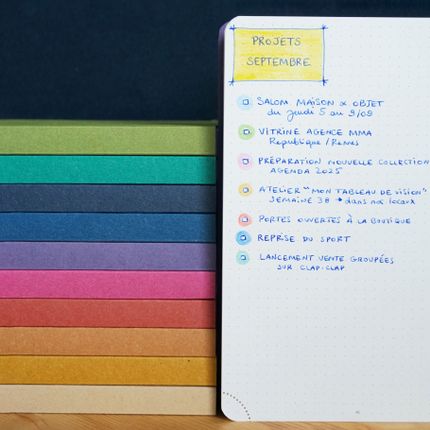 PROJETS
SEPTEMBRE
SALON MAISON & OBJET
du jeudi 5 au 9/09
VITRINE AGENCE MMA
République / Rennes
PRÉPARATION NOUVELLE COLLECTION
AGENDA 2025
ATELIER "MON TABLEAU DE VISION"
SEMAINE 38 → dans nos locaux
PORTES OUVERTES À LA BOUTIQUE
REPRISE DU SPORT
LANCEMENT VENTE GROUPÉES
SUR CLAP-CLAP